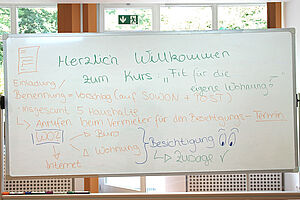 Herzlich Willkommen
zum Kurs: "Fit für die
eigene Wohnung?"
Einladung
Benennung = Vorschlag (auf SOWON +
insgesamt 5 Haushalte
↳ Anrufen beim Vermieter für den Besichtigungs-Termin
Büro
Wohnung
Besichtigung
↳ Zusage ✓
Internet